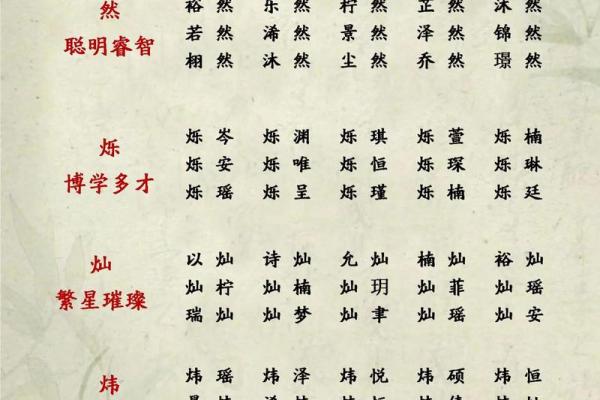 然
聪明睿智
裕然 乐然 柠然 芷然 沐然
若然 浠然 景然 泽然 锦然
栩然 沐然 尘然 乔然 璟然
烁
博学多才
烁岑 烁渊 烁琪 烁萱 烁楠
烁安 烁唯 烁恒 烁琛 烁琳
烁瑶 烁呈 烁瑾 烁楠 烁廷
灿
繁星璀璨
以灿 诗灿 允灿 楠灿 裕灿
灿柠 灿楠 灿玥 灿菲 灿瑶
瑞灿 灿梦 灿聿 灿瑶 灿安
炜
炜瑶 炜泽 炜悦 炜硕 炜恒